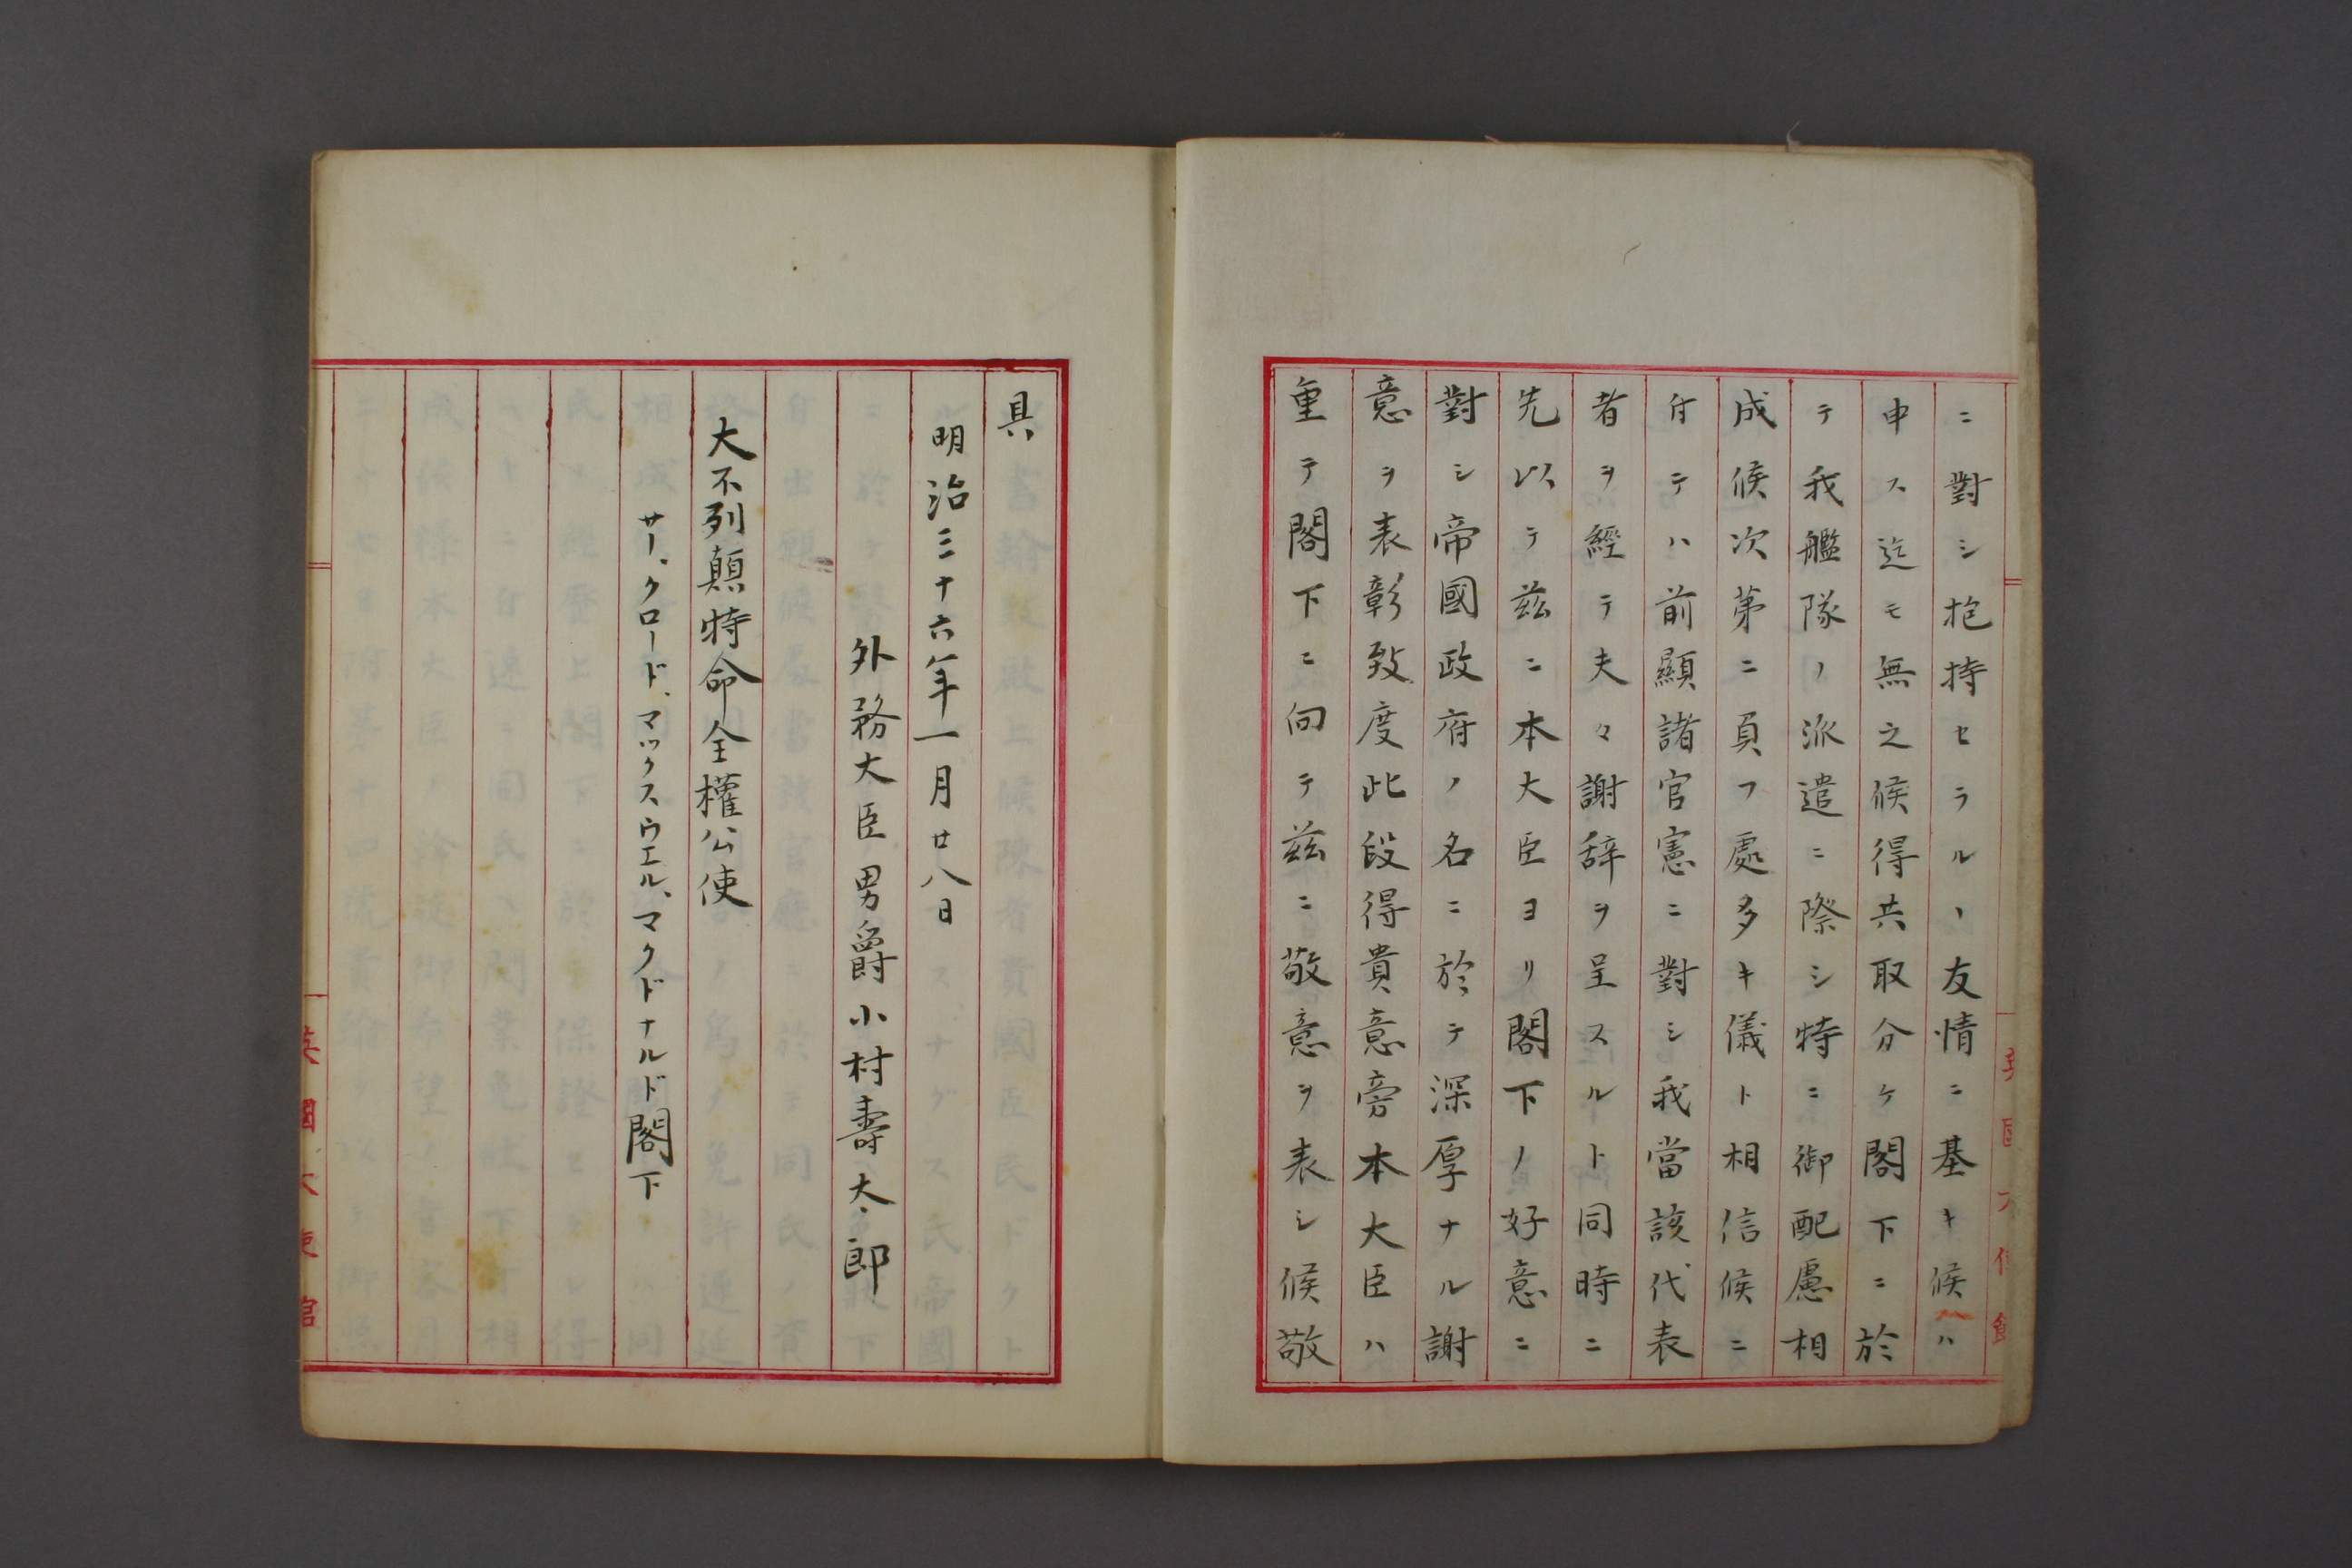 ニ對シ抱持セラルヽ友情ニ基キ候ハ
申ス迄モ無之候得共取分ケ閣下ニ於
テ我艦隊ノ派遣ニ際シ特ニ御配慮相
成候次第ニ頁フ處多キ儀ト相信候ニ
付テハ前顯諸官憲ニ對シ我當該代表
者ヲ經テ夫々謝辞ヲ呈スルト同時ニ
先以テ茲ニ本大臣ヨリ閣下ノ好意ニ
對シ帝國政府ノ名ニ於テ深厚ナル謝
意ヲ表彰致度此段得貴意旁本大臣ハ
重テ閣下ニ向テ茲ニ敬意ヲ表シ候敬
具
明治三十六年一月廿八日
外務大臣男爵小村壽太郎
大不列顛特命全權公使
サー、クロード、マックスウエル、マクドナルド閣下
英國大使館